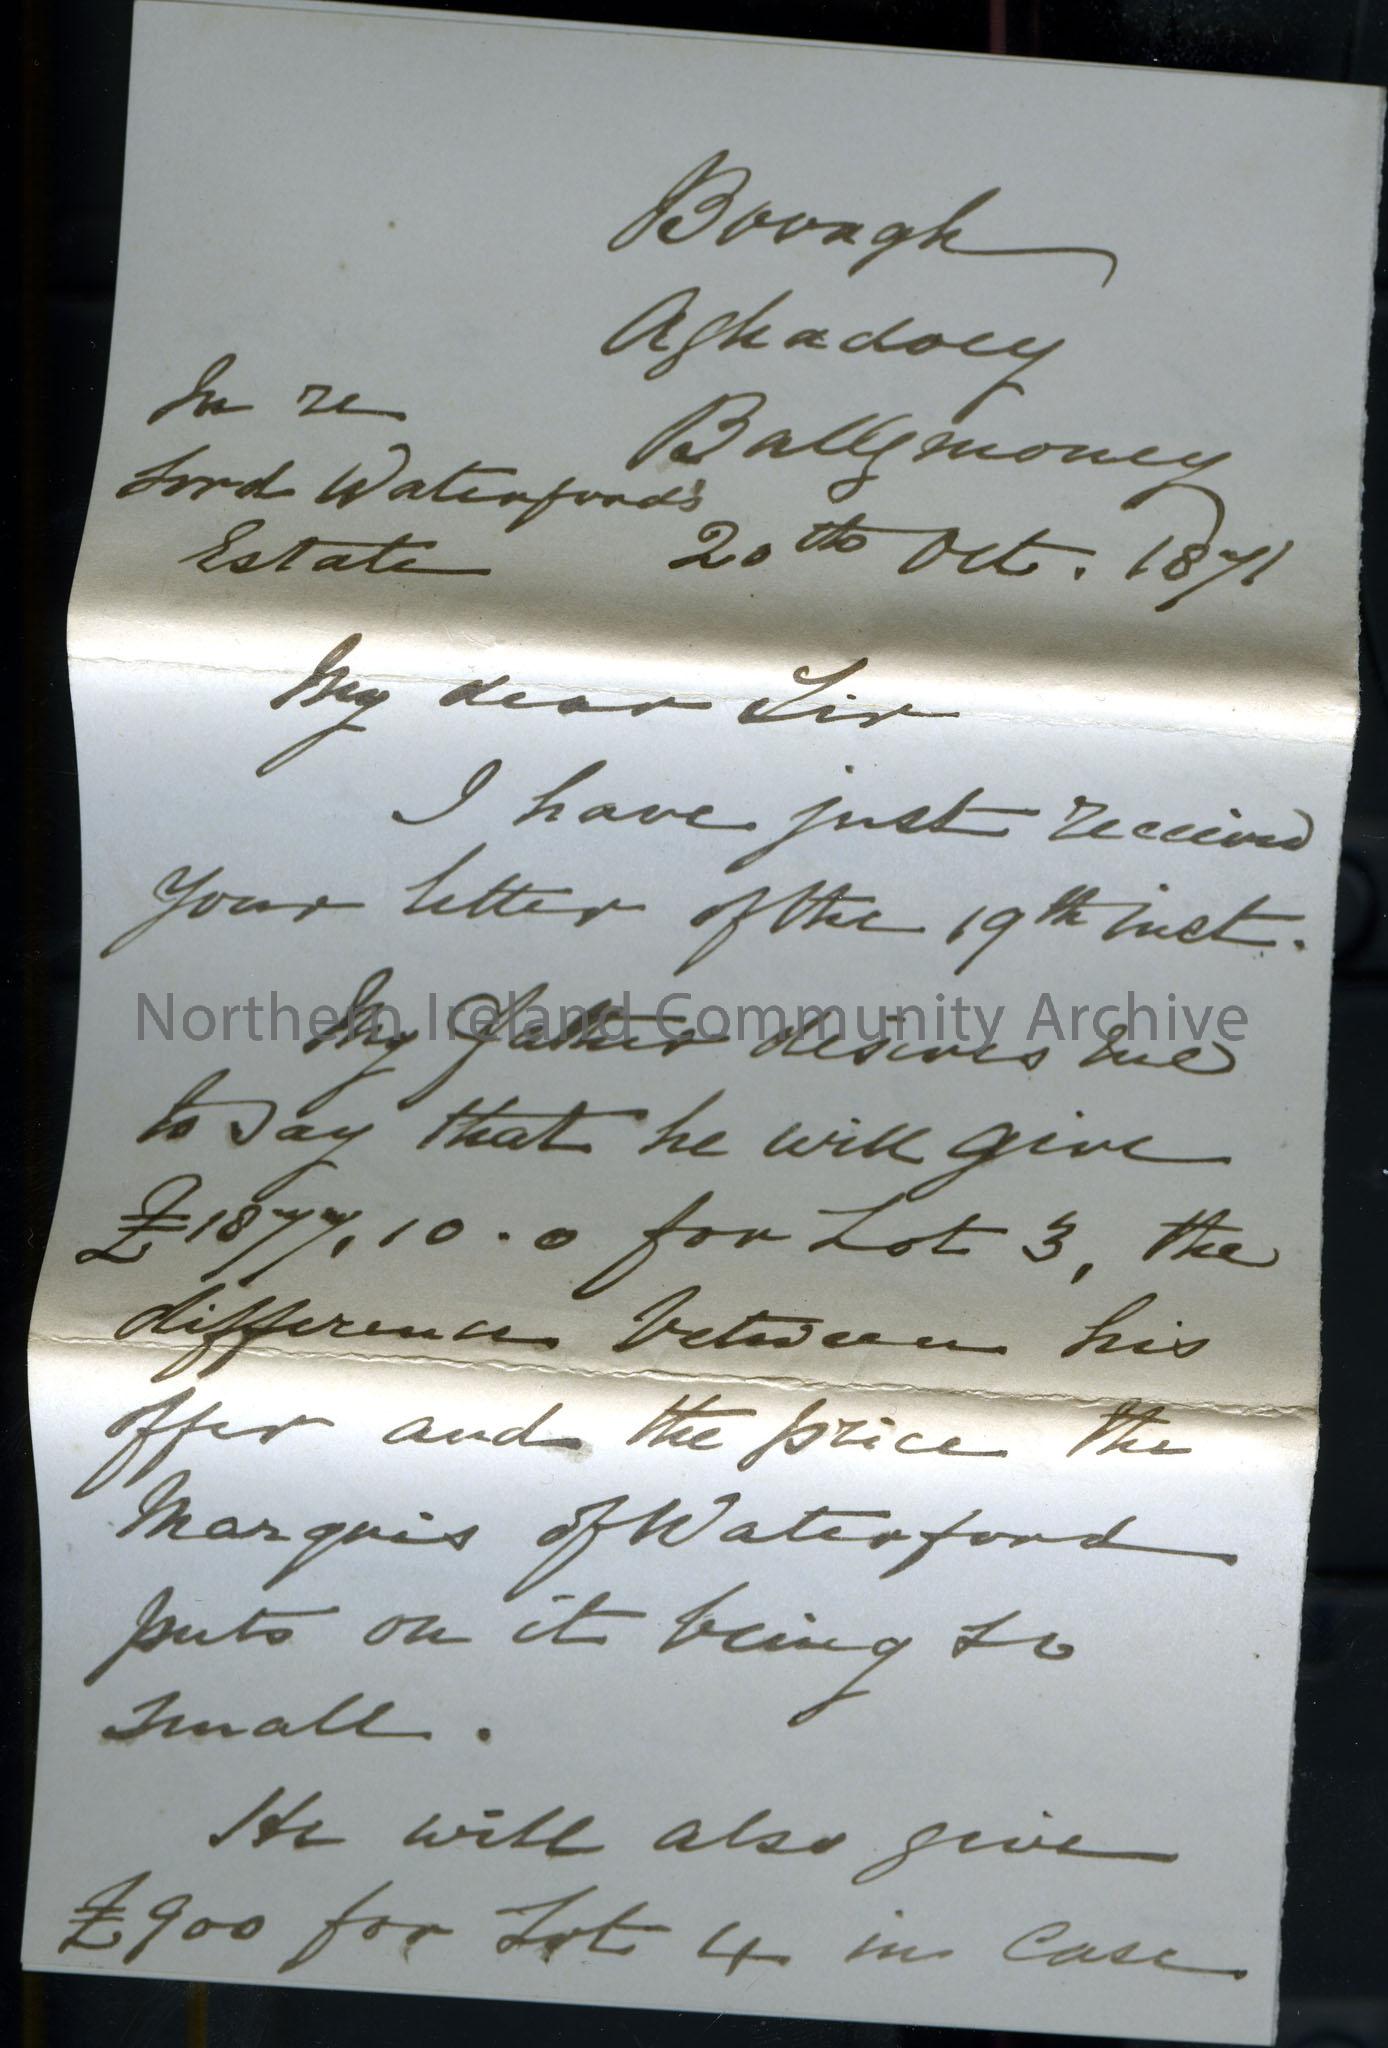 Bovagh
Aghadoey
Ballymoney
In re
Lord Waterford's
Estate
20th Oct. 1871
My dear Sir
I have just received
your letter of the 19th inst.
My Father desires me
to say that he will give
£1877,10.0 for Lot 3, the
difference between his
offer and the price the
Marquis of Waterford
puts on it being so
small.
He will also give
£900 for Lot 4 in case
Northern Ireland Community Archive